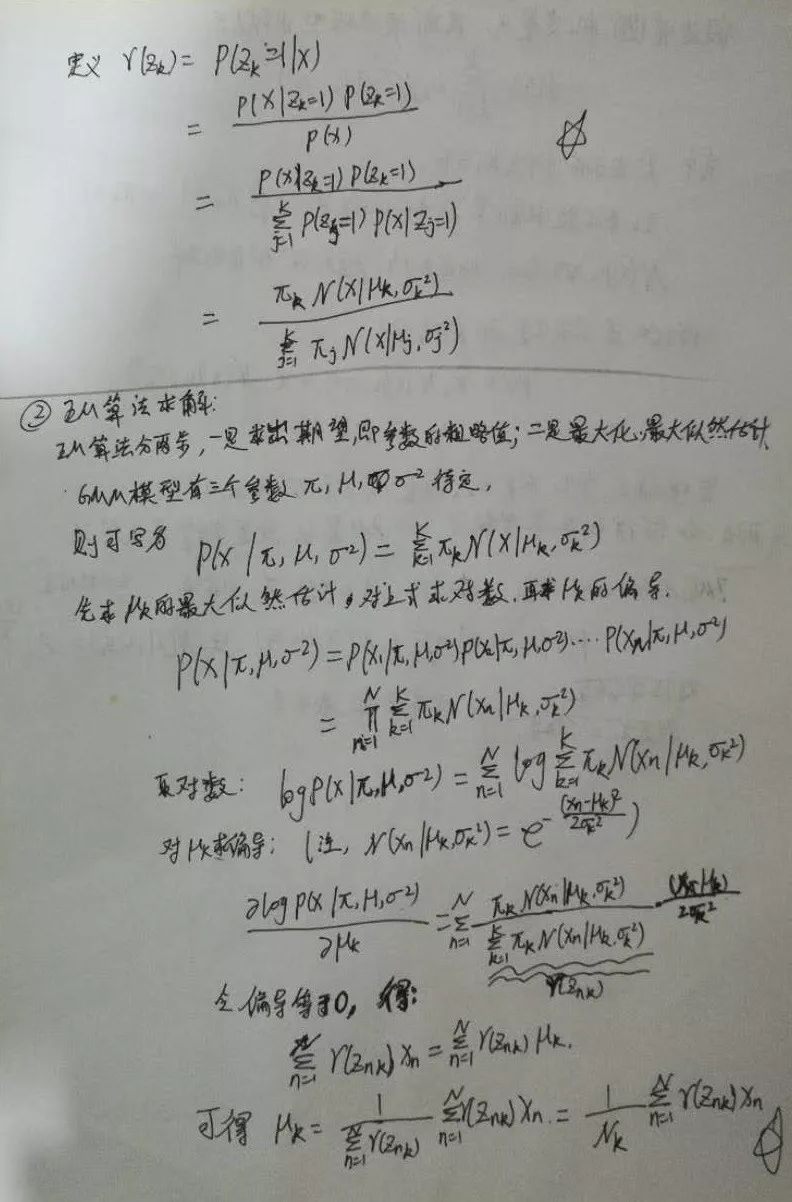 定义 γ(z_k) = P(z_k=1|X)
= P(X|z_k=1) P(z_k=1) / P(X)
= P(X|z_k=1) P(z_k=1) / ∑_{j=1}^{K} P(z_j=1) P(X|z_j=1)
= π_k N(X|μ_k, σ_k²) / ∑_{j=1}^{K} π_j N(X|μ_j, σ_j²)
② EM算法求解:
EM算法分两步,一是求出期望,即参数的粗略值;二是最大化,最大似然估计
GMM模型有三个参数 π, μ, σ² 待定,
则可写为 P(X|π, μ, σ²) = ∑_{k=1}^{K} π_k N(X|μ_k, σ_k²)
先求 μ_k 的最大似然估计,对上式求对数,再求 μ_k 的偏导.
P(X|π, μ, σ²) = P(X_1|π, μ, σ²) P(X_2|π, μ, σ²) ···· P(X_N|π, μ, σ²)
= ∏_{n=1}^{N} ∑_{k=1}^{K} π_k N(X_n|μ_k, σ_k²)
取对数: log P(X|π, μ, σ²) = ∑_{n=1}^{N} log ∑_{k=1}^{K} π_k N(X_n|μ_k, σ_k²)
对 μ_k 求偏导: (注, N(X_n|μ_k, σ_k²) = e^{-(X_n-μ_k)²/2σ_k²})
∂log P(X|π, μ, σ²) / ∂μ_k = ∑_{n=1}^{N} π_k N(X_n|μ_k, σ_k²) / ∑_{k=1}^{K} π_k N(X_n|μ_k, σ_k²) · (X_n-μ_k) / 2σ_k²
γ(z_{nk})
令偏导等于0, 得:
∑_{n=1}^{N} γ(z_{nk}) X_n = ∑_{n=1}^{N} γ(z_{nk}) μ_k.
可得 μ_k = 1 / ∑_{n=1}^{N} γ(z_{nk}) ∑_{n=1}^{N} γ(z_{nk}) X_n = 1 / N_k ∑_{n=1}^{N} γ(z_{nk}) X_n